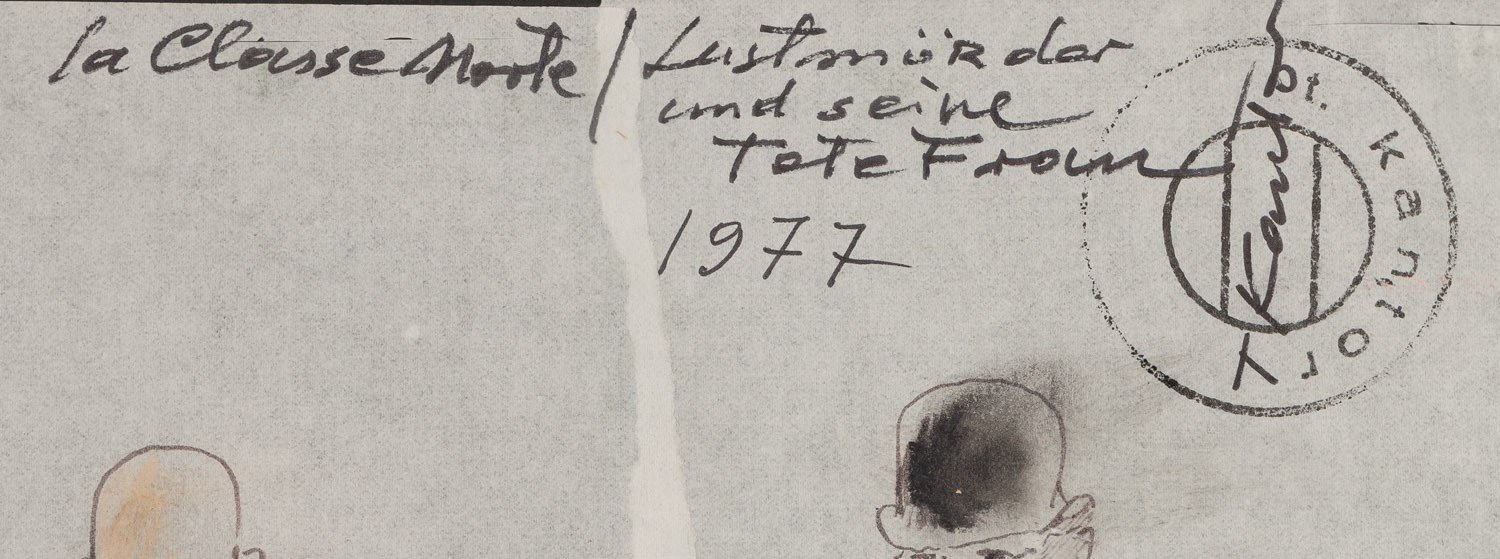 la Classe Morte / Lustmörder
und seine
Tote Frau
1977
pt. Kantory
Kantor